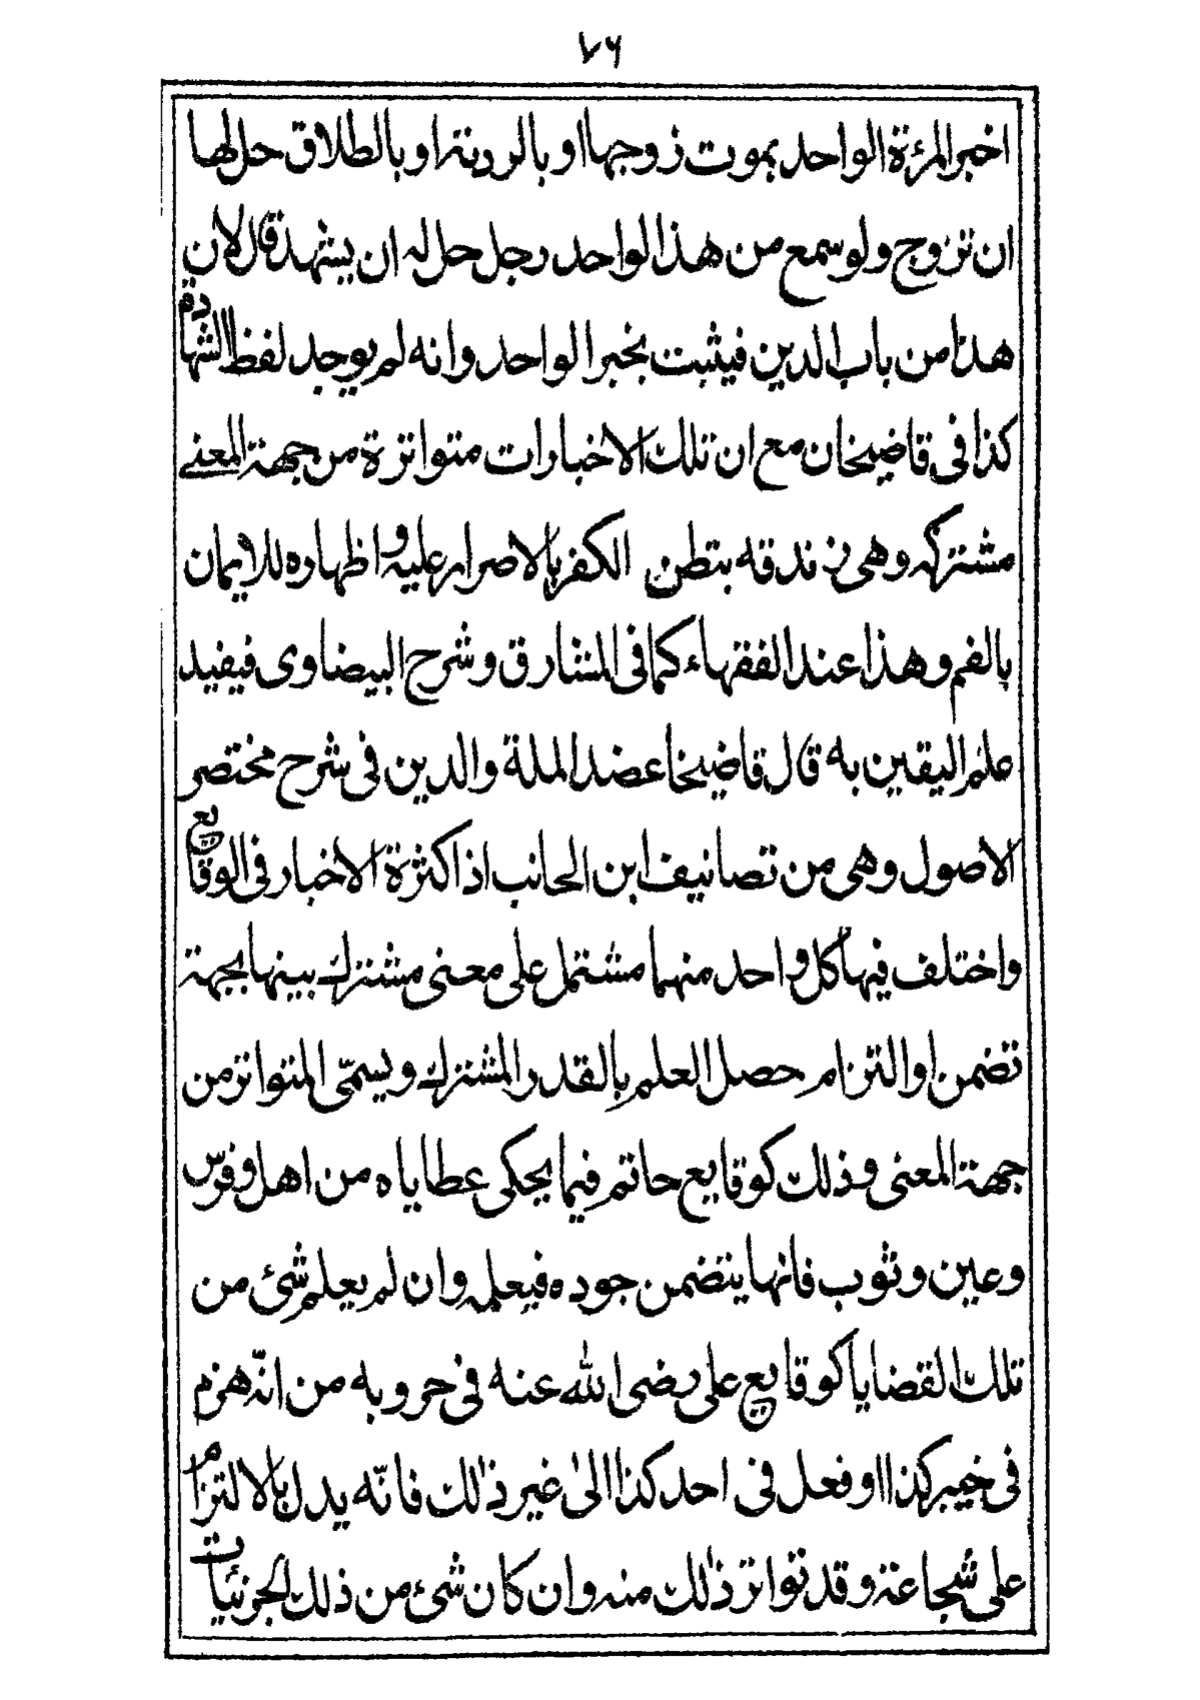 ٧٦
اخبر المرءة الواحد بموت زوجها او بالردة او بالطلاق حل لها
ان تزوج ولو سمع من هذا الواحد رجل حل له ان يشهد قال لان
هذا من باب الدين فيثبت بخبر الواحد وانه لم يوجد لفظ الشهادة
كذا فى قاضيخان مع ان تلك الاخبارات متواترة من جهة المعنى
مشتركه وهى زندقه بتطن الكفر بالاصرار عليه و اظهاره للايمان
بالفم وهذا عند الفقهاء كما فى المشارق وشرح البيضاوى فيفيد
علم اليقين به قال قاضيخا عضد الملة والدين فى شرح مختصر
الاصول وهى من تصانيف ابن الحانب اذا كثرة الاخبار فى الوقايع
واختلف فيها كل واحد منهما مشتمل على معنى مشترك بينها بجهة
تضمن او التزام حصل العلم بالقدر المشترك ويسمّى المتواتر من
جهة المعنى وذلك كوقايع حاتم فيما يحكى عطاياه من اهل وفرس
وعين وثوب فانها يتضمن جوده فيعلم وان لم يعلم شئ من
تلك القضايا كوقايع على رضى الله عنه فى حروبه من انّه هزم
فى خيبر كذا او فعل فى احد كذا الى غير ذلك فانّه يدل بالالتزام
على شجاعة وقد تواتر ذلك منه وان كان شئ من ذلك الجزئيات